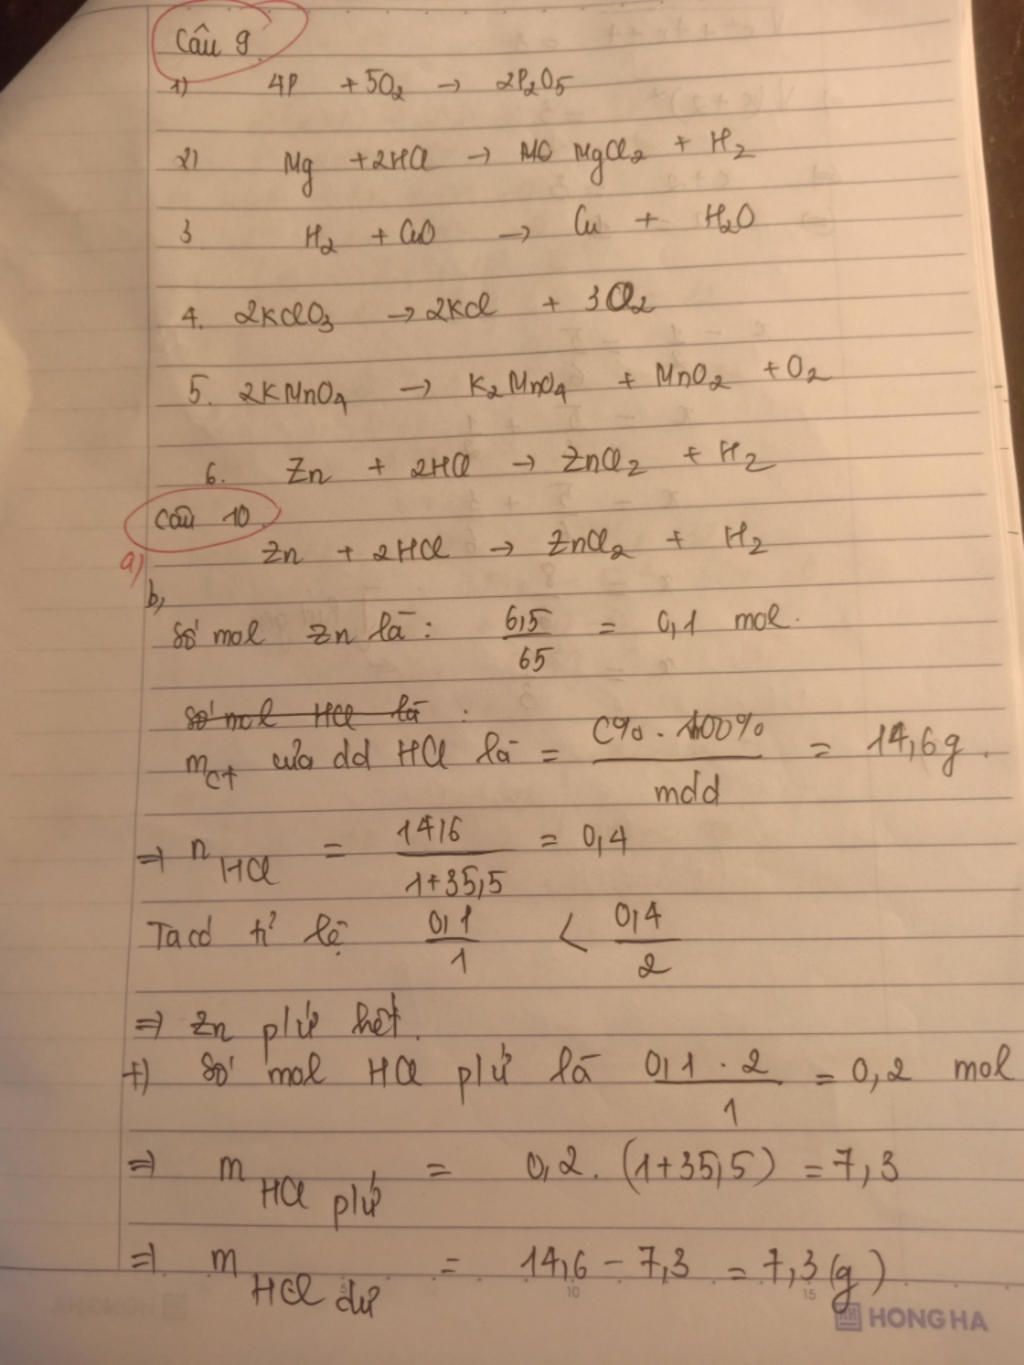 Câu 9
1) 4P + 5O2 → 2P2O5
2) Mg + 2HCl → MO MgCl2 + H2
3 H2 + CuO → Cu + H2O
4. 2KClO3 → 2KCl + 3O2
5. 2KMnO4 → K2MnO4 + MnO2 + O2
6. Zn + 2HCl → ZnCl2 + H2
Câu 10
a) Zn + 2HCl → ZnCl2 + H2
b,
Số mol Zn là: 6,5/65 = 0,1 mol.
Số mol HCl là :
mct của dd HCl là = C% . 100%/mdd = 14,6g.
⇒ nHCl = 14,6/1+35,5 = 0,4
Ta có tỉ lệ 0,1/1 < 0,4/2
⇒ Zn p/ứ hết.
+) Số mol HCl p/ứ là 0,1 . 2/1 = 0,2 mol
⇒ mHCl p/ứ = 0,2. (1+35,5) = 7,3
⇒ mHCl dư = 14,6 - 7,3 = 7,3 (g)
10 15
HONG HA